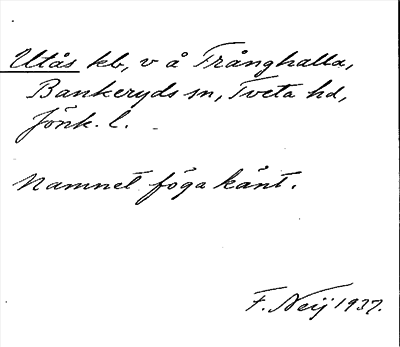 Utås kb, v å Trånghalla,
Bankeryds sn, Tveta hd,
Jönk. l.
Namnet föga känt.
F. Neij 1937.